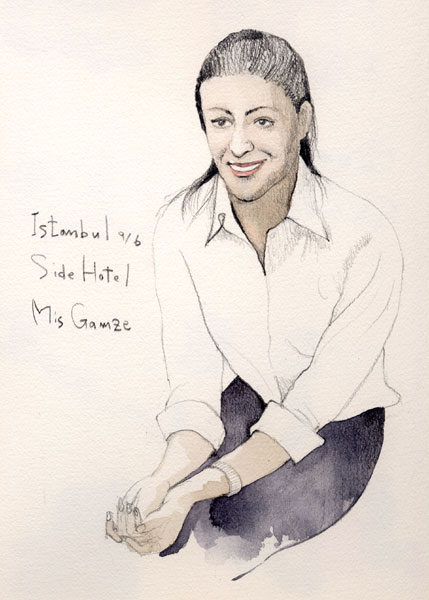 Istanbul 9/6
Side Hotel
Mis Gamze